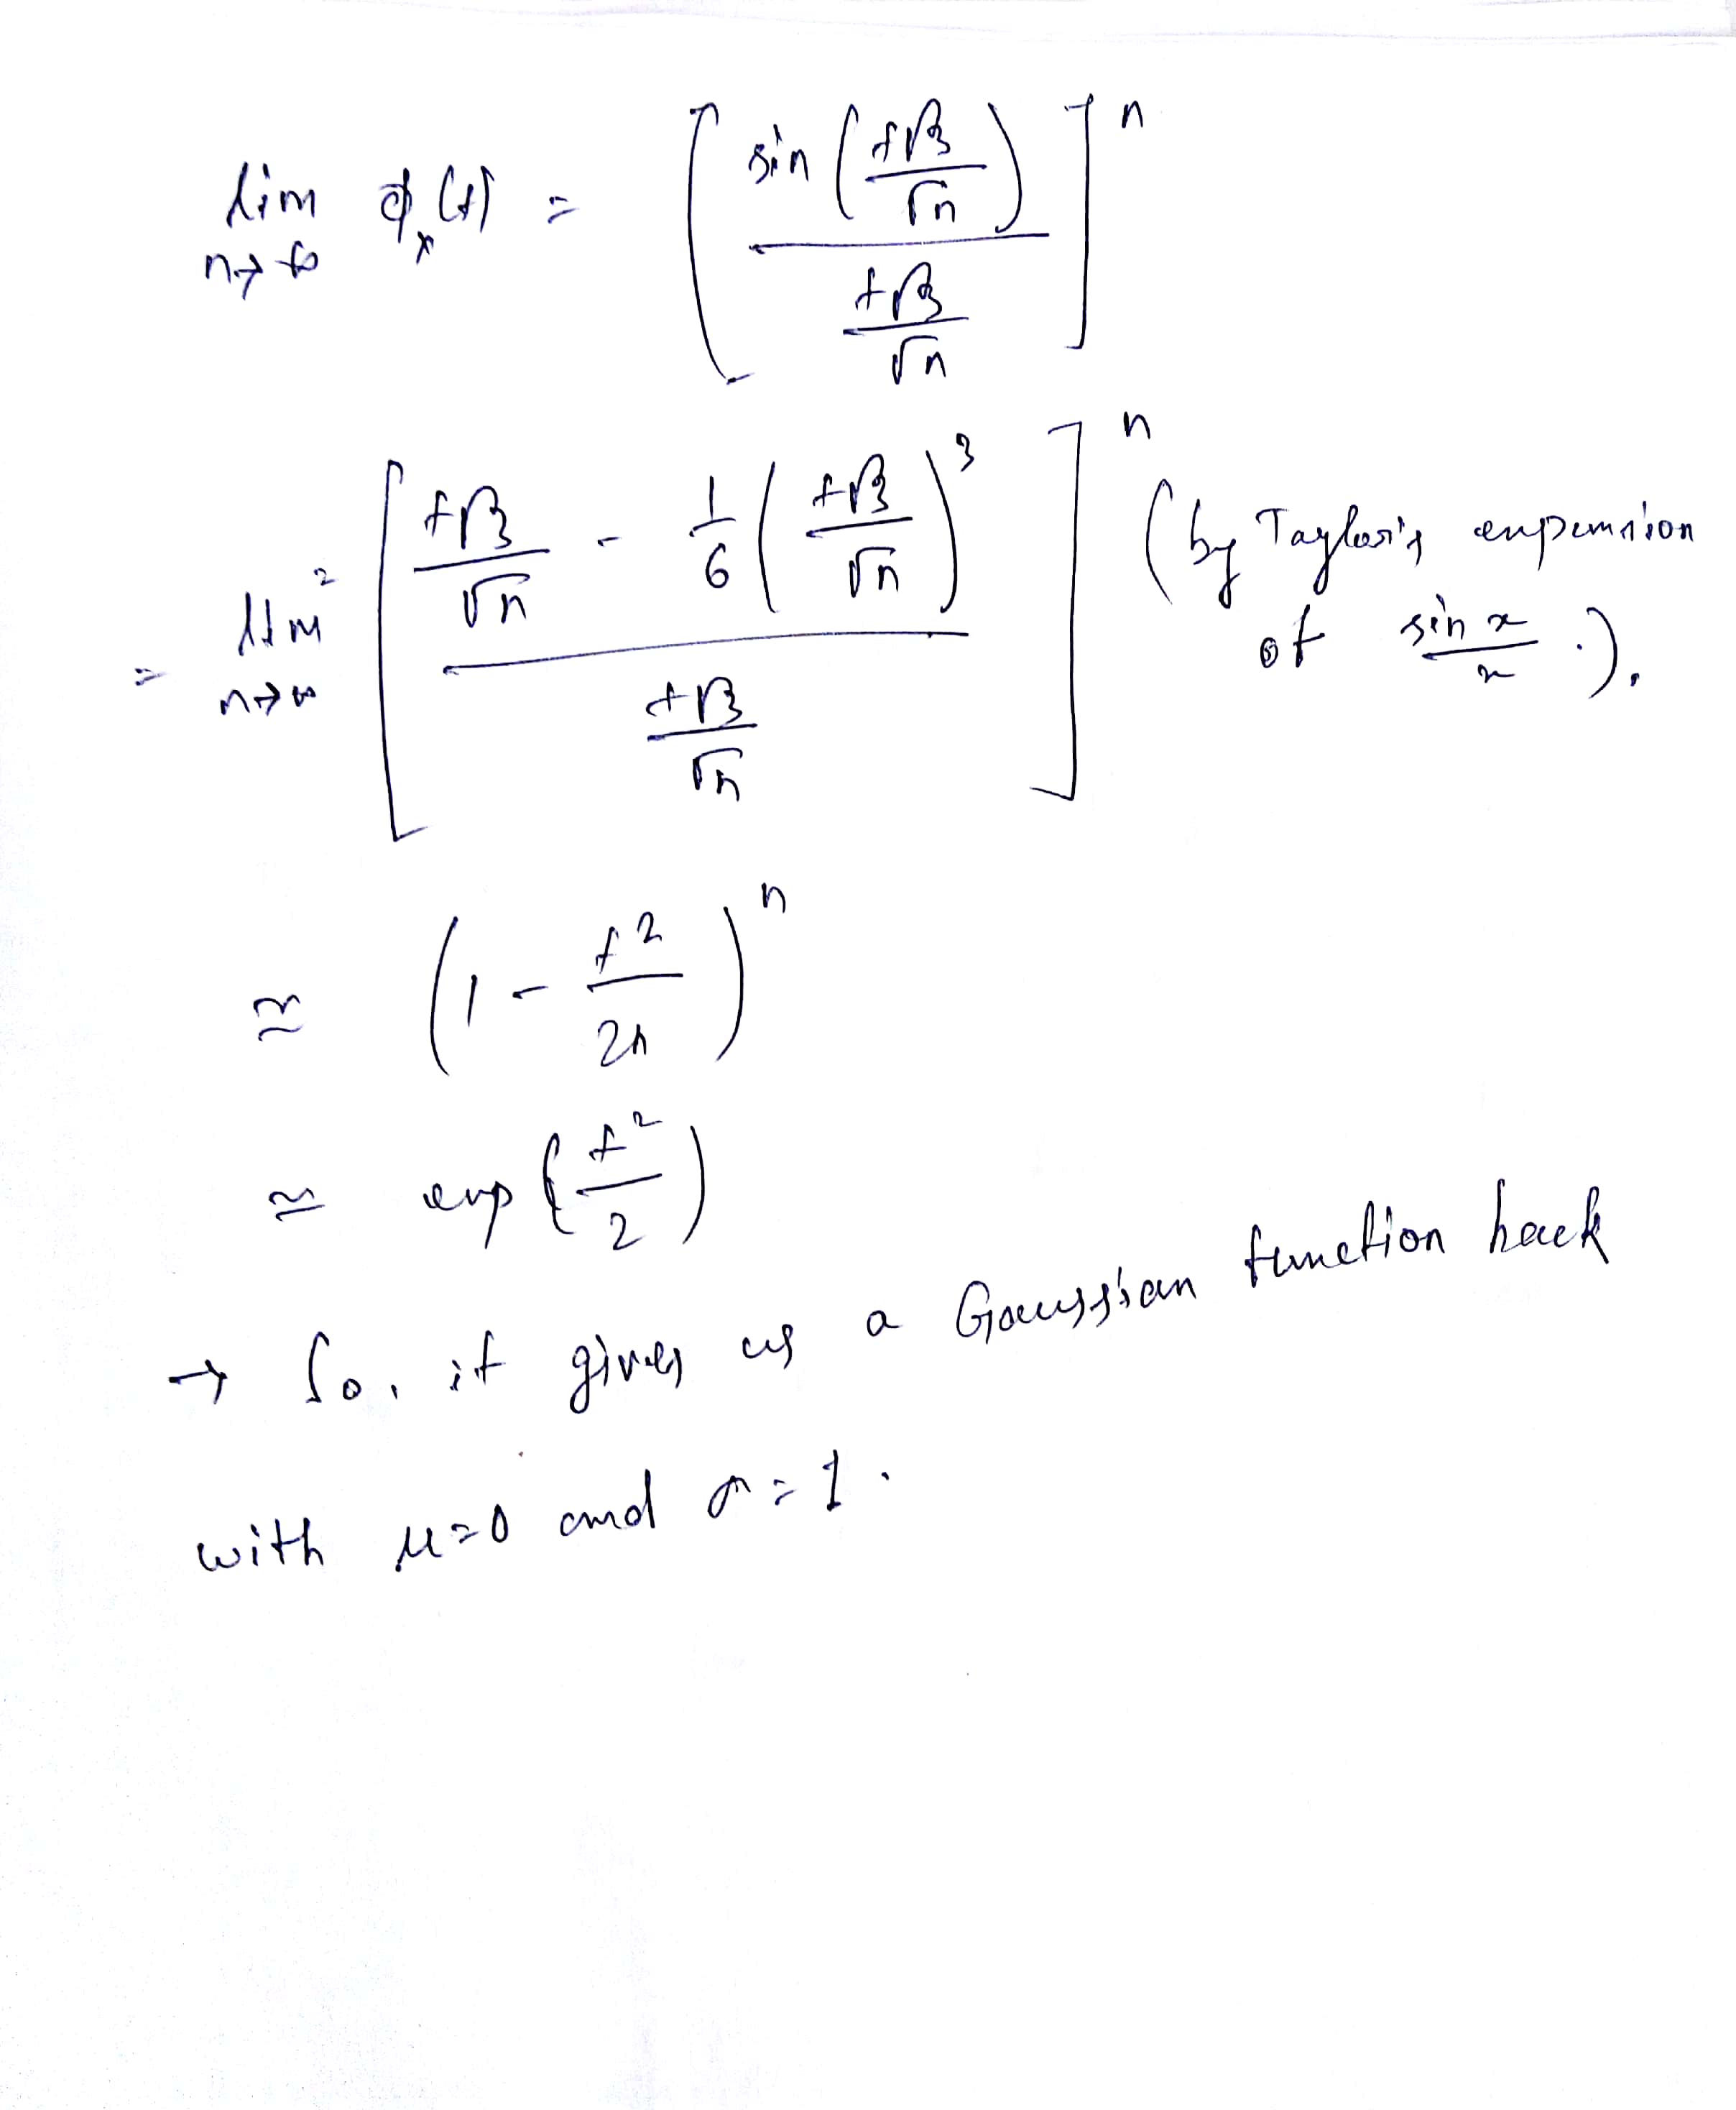 lim n→∞ ϕ_x(t) = [ sin ( t√3 / √n ) / ( t√3 / √n ) ]^n
= lim n→∞ [ ( t√3 / √n - 1/6 ( t√3 / √n )^3 ) / ( t√3 / √n ) ]^n (by Taylor's expansion
of sin x / x .).
≃ ( 1 - t^2 / 2n )^n
≃ exp ( t^2 / 2 )
→ So, it gives us a Gaussian function back
with μ=0 and σ=1.